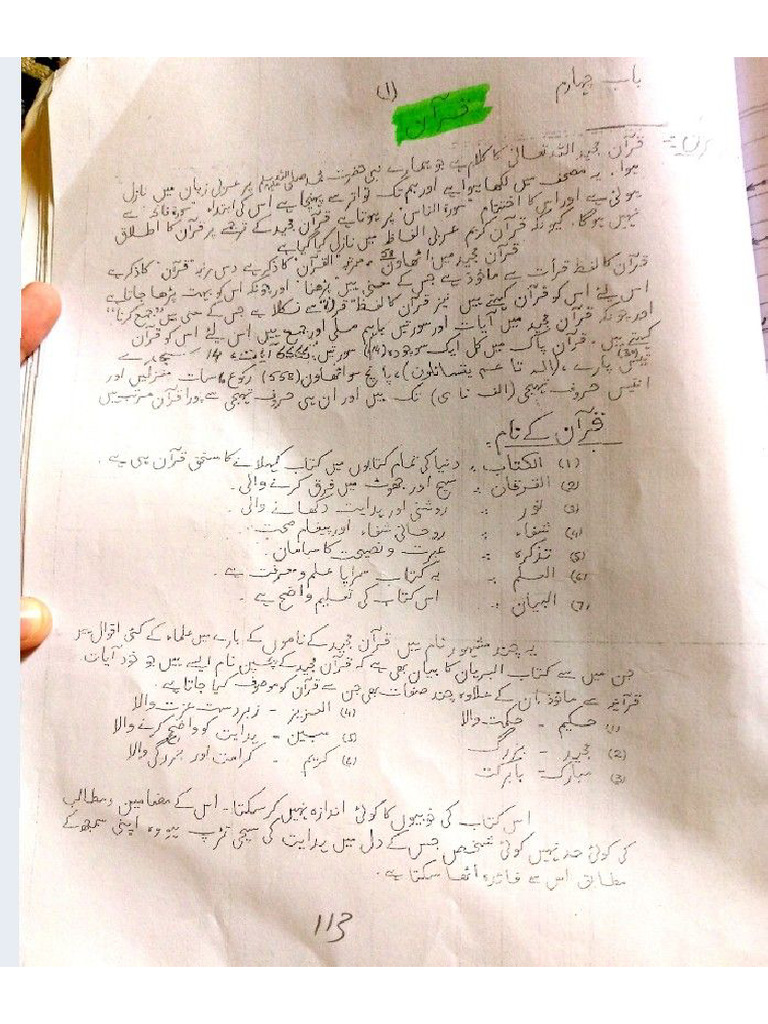 باب چہارم
(1)
قرآن
قرآن:-
قرآن مجید اللہ تعالیٰ کا کلام ہے جو ہمارے نبی حضرت محمد صلی اللہ علیہ وسلم پر عربی زبان میں نازل
ہوا۔ یہ مصحف میں لکھا ہوا ہے اور ہم تک تواتر سے پہنچا ہے اس کی ابتداء "سورۃ فاتحہ" سے
ہوئی ہے اور اس کا اختتام "سورۃ الناس" پر ہوتا ہے قرآن مجید کے ترجمے پر قرآن کا اطلاق
نہیں ہوگا۔ کیونکہ قرآن کریم عربی الفاظ میں نازل کیا گیا ہے
قرآن مجید میں اٹھاون 58 مرتبہ "القرآن" کا ذکر ہے دس مرتبہ "قرآن" کا ذکر ہے
قرآن کا لفظ قرأت سے ماخوذ ہے جس کے معنی ہیں "پڑھنا" اور چونکہ اس کو بہت پڑھا جاتا ہے
اس لئے اس کو قرآن کہتے ہیں نیز قرآن کا لفظ "قرن" سے نکلا ہے جس کے معنی ہیں "جمع کرنا"
اور چونکہ قرآن مجید میں آیات اور سورتیں باہم ملی اور جمع ہیں اس لئے اس کو قرآن
کہتے ہیں۔ قرآن پاک میں کل ایک سو چودہ (114) سورتیں، 6666 آیات، 14 سجدے
تیس (30) پارے، (الم تا عم یتسائلون)، پانچ سو اٹھاون (558) رکوع، سات منزلیں اور
انتیس حروف تہجی (الف تا ی) تک ہیں اور ان ہی حروف تہجی سے پورا قرآن مرتب ہیں
قرآن کے نام:
(1) الکتاب :- دنیا کی تمام کتابوں میں کتاب کہلانے کا مستحق قرآن ہی ہے۔
(2) الفرقان :- سچ اور جھوٹ میں فرق کرنے والی۔
(3) نور :- روشنی اور ہدایت دکھانے والی۔
(4) شفاء :- روحانی شفاء اور پیغام صحت۔
(5) تذکرہ :- عبرت و نصیحت کا سامان۔
(6) العلم :- یہ کتاب سراپا علم و معرفت ہے۔
(7) البیان :- اس کتاب کی تعلیم واضح ہے۔
یہ چند مشہور نام ہیں قرآن مجید کے ناموں کے بارے میں علماء کے کئی اقوال ہیں
جن میں سے کتاب البرہان کا بیان بھی ہے کہ قرآن مجید کے پچپن نام ایسے ہیں جو خود آیات
قرآنیہ سے ماخوذ ہان کے علاوہ چند صفات بھی جن سے قرآن کو موصوف کیا جاتا ہے۔
(1) حکیم - حکمت والا (4) العزیز - زبردست عزت والا
(2) مجید - بزرگ (5) مبین - ہدایت کو واضح کرنے والا
(3) مبارک - بابرکت (6) کریم - کرامت اور بزرگی والا
اس کتاب کی خوبیوں کا کوئی اندازہ نہیں کرسکتا۔ اس کے مضامین و مطالب
کی کوئی حد نہیں کوئی شخص جس کے دل میں ہدایت کی سچی تڑپ ہو وہ اپنی سمجھ کے
مطابق اس سے فائدہ اٹھا سکتا ہے۔
113